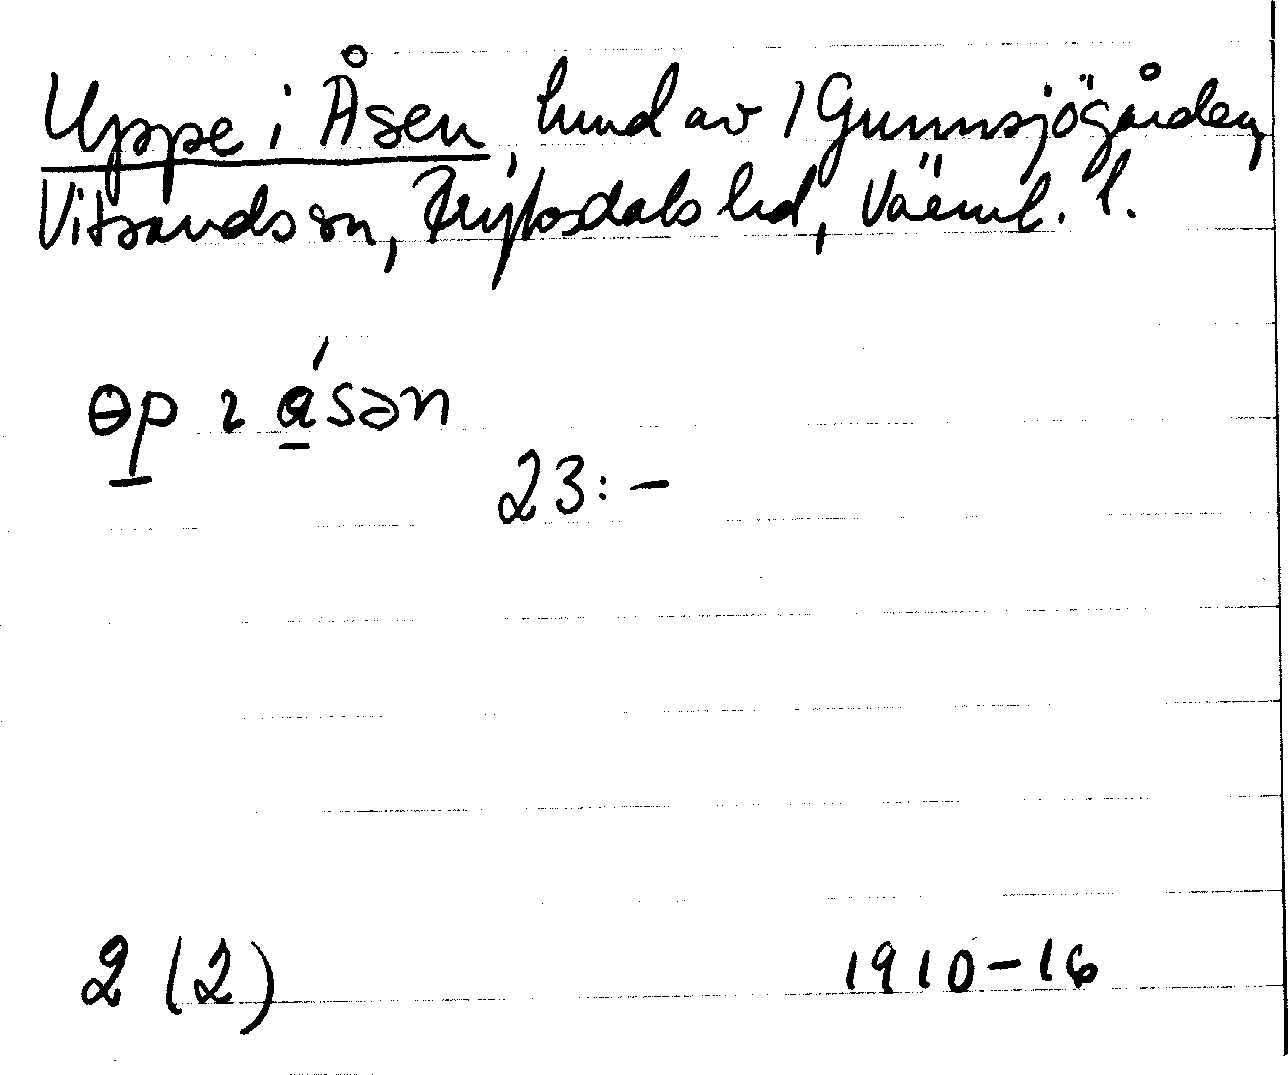 Uppe i Åsen, hmd av 1 Gunnsjögården,
Vitsands sn, Fryksdals hd, Värml. l.
ɵp ɩ a̱´sən
23:-
2 (2)
1910-16